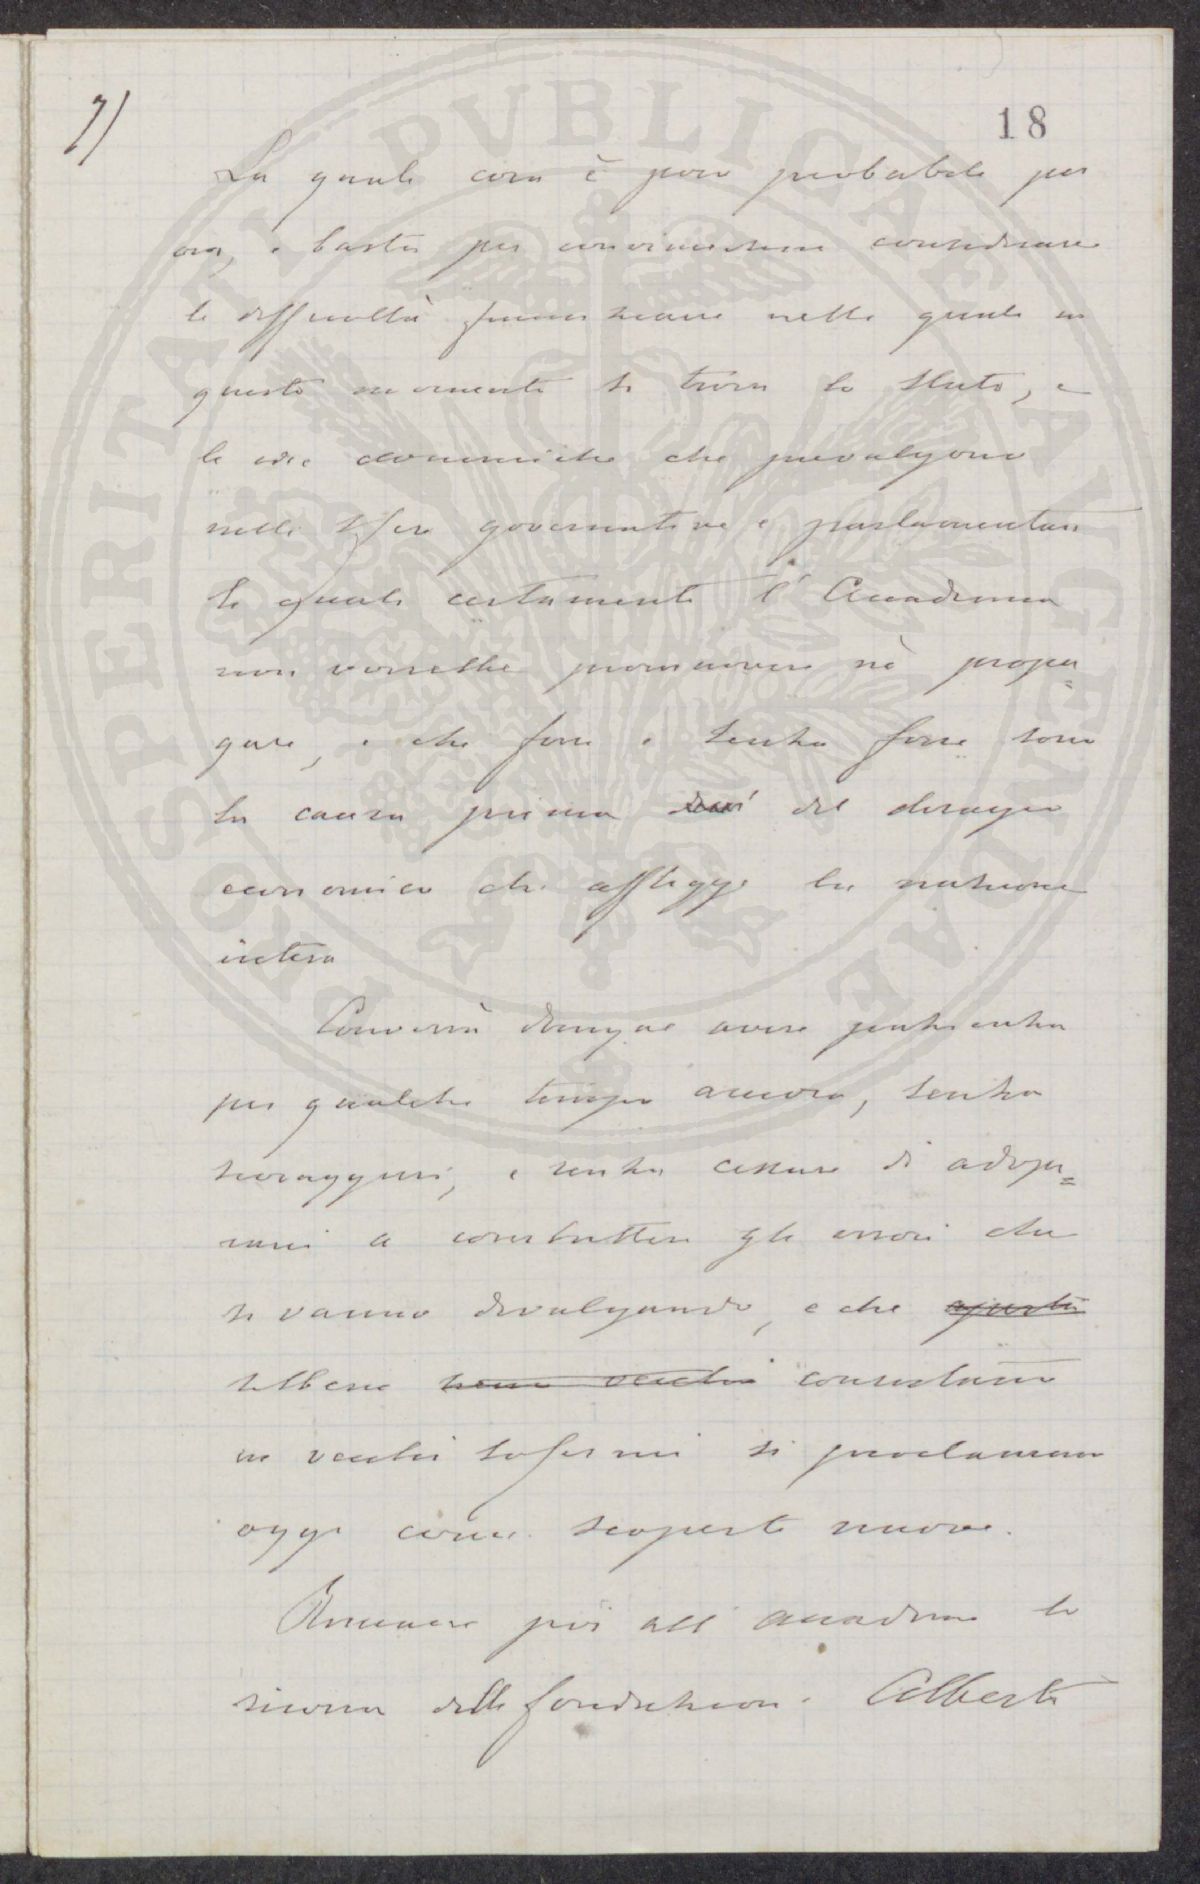 7)
18
La quale cosa è poco probabile per
ora, e basta per convincersene considerare
le difficoltà finanziarie nelle quali in
questo momento si trova lo Stato, e
le idee economiche che prevalgono
nelle sfere governative e parlamentari
le quali certamente l'Accademia
non vorrebbe promuovere nè propa=
gare, e che forse e senza forse sono
la causa prima del disagio
economico che affligge la nazione
intera
Converrà dunque avere pazienza
per qualche tempo ancora, senza
scoraggirsi, e senza cessare di adope=
rarsi a combattere gli errori che
si vanno divulgando, e che questi
sebbene sono vecchi consistano
in vecchi sofismi si proclamano
oggi come scoperte nuove.
Rimane poi all'accademia la
risorsa delle fondazioni Alberti
PROSPERITATI PVBLICAE AVGENDAE